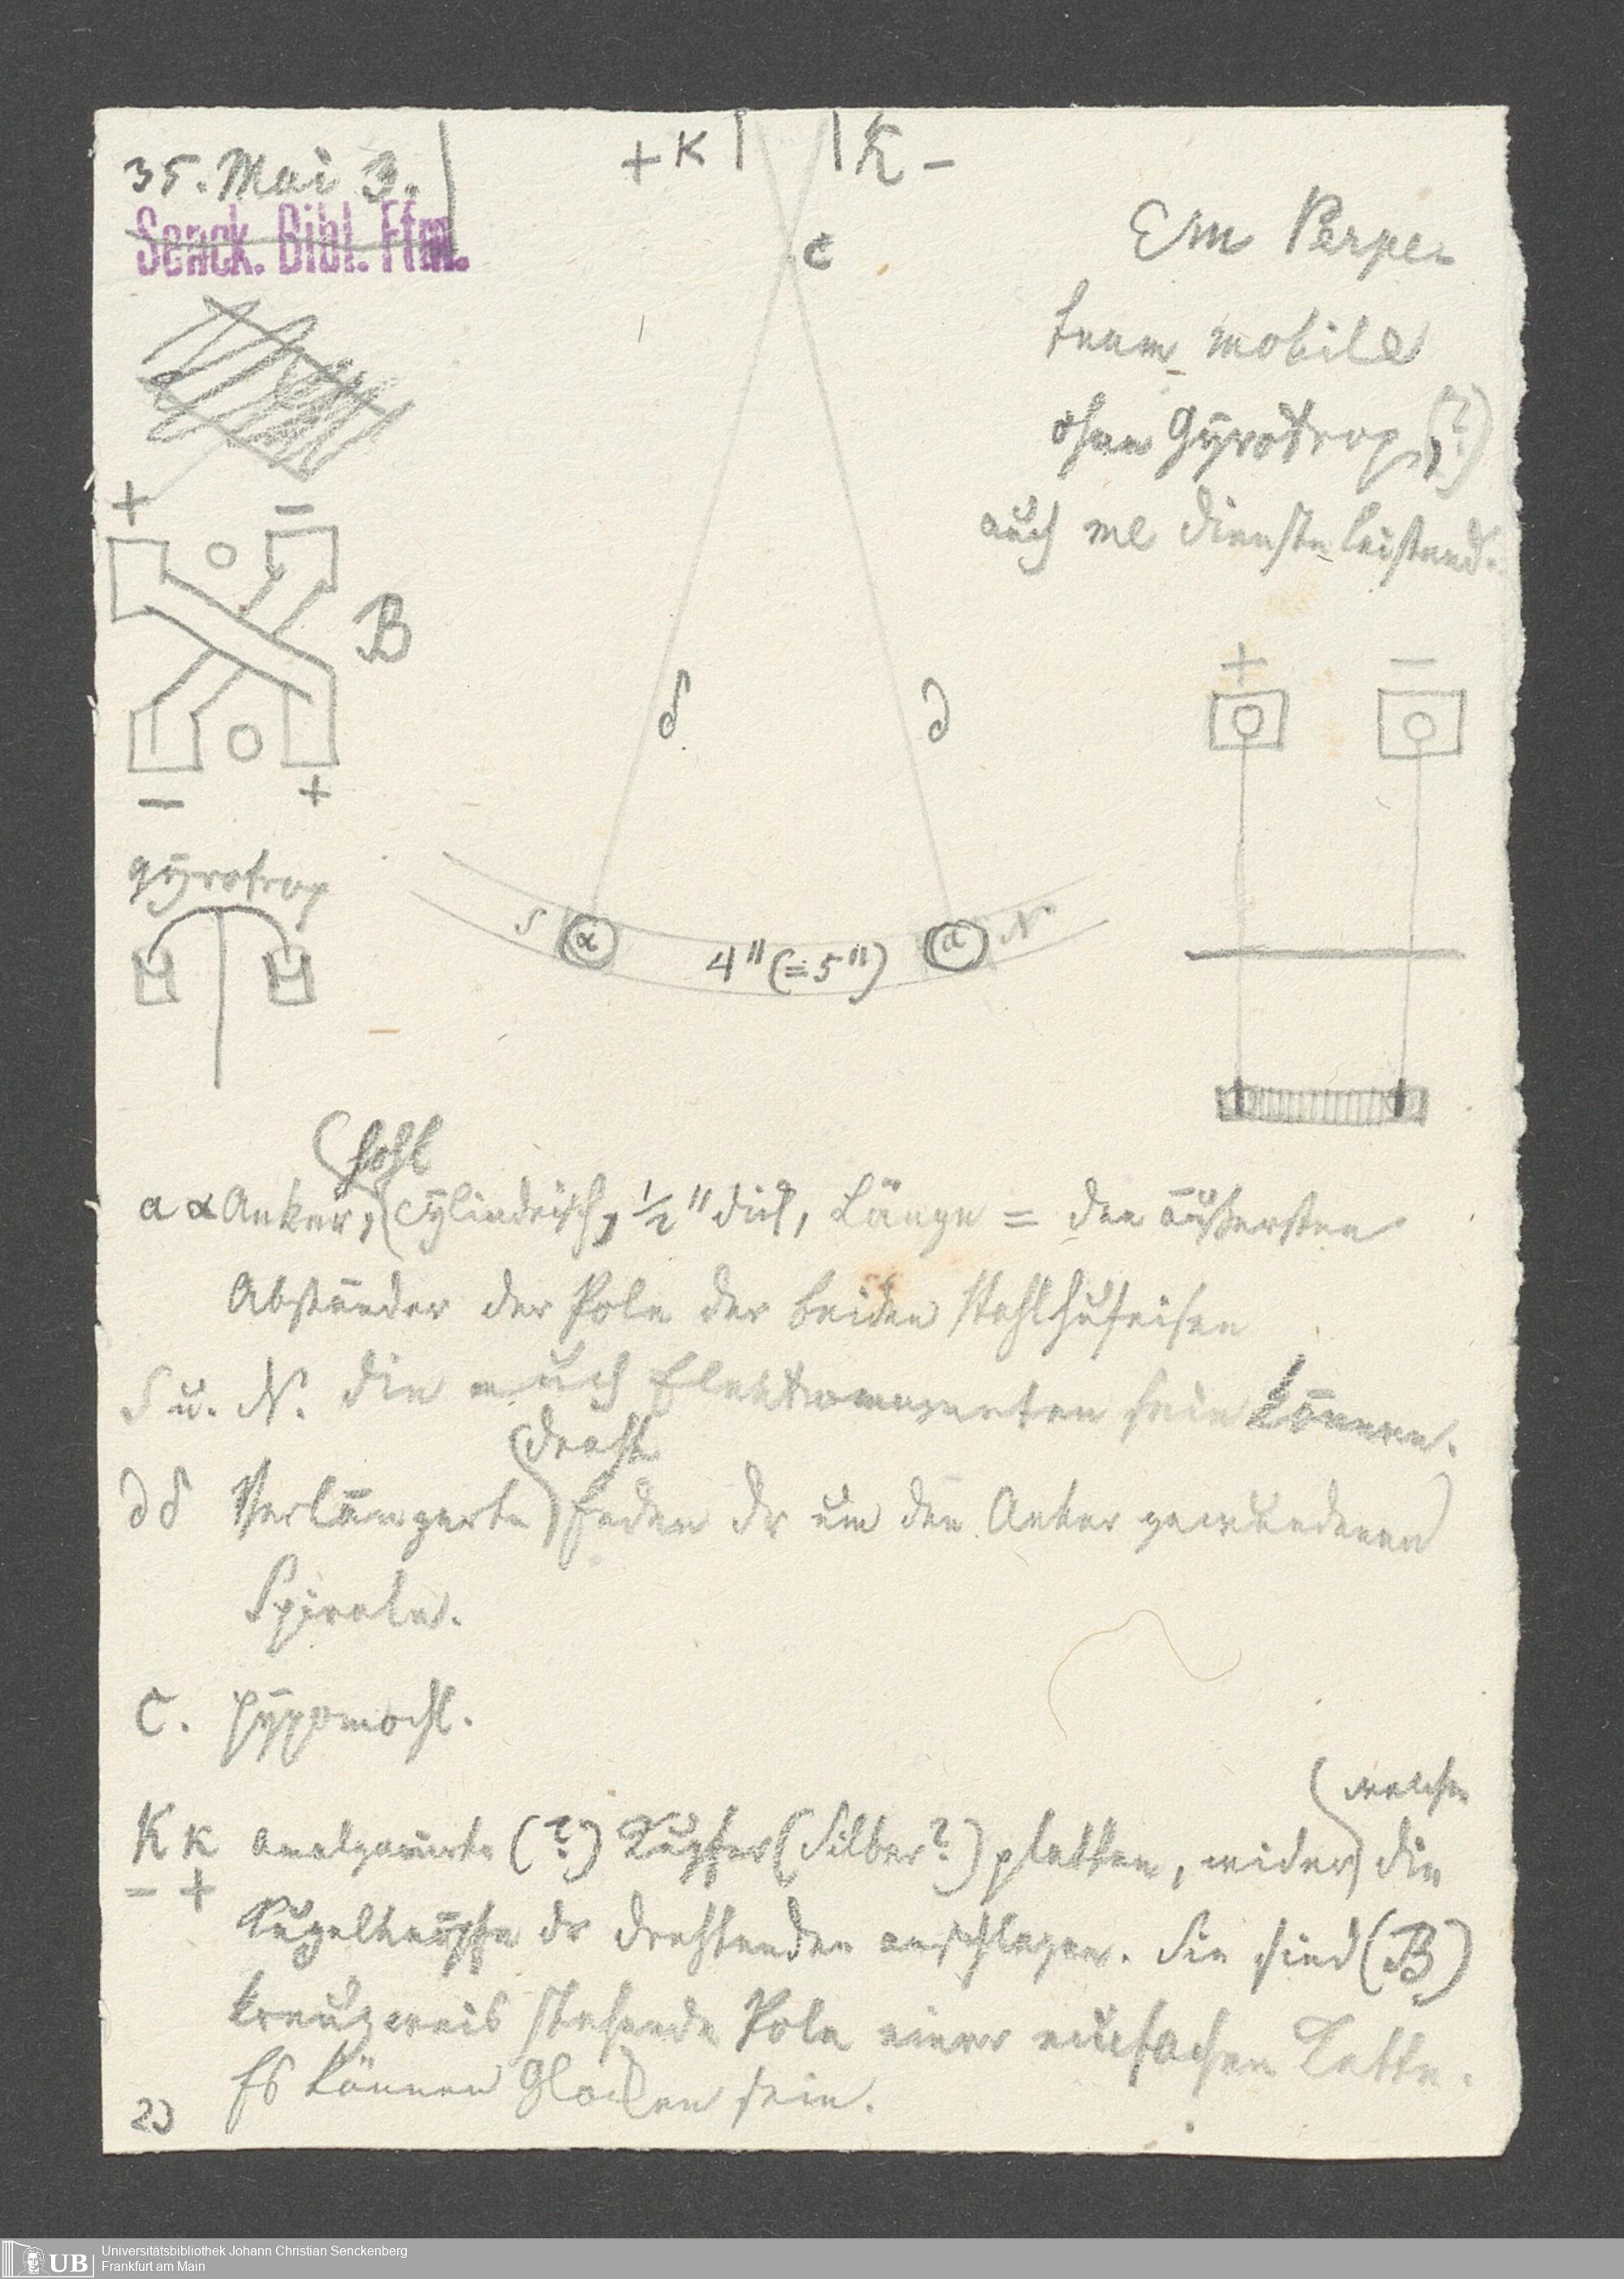 35. Mai 3.
Senck. Bibl. Ffm.
+ K K -
c
Em Perpe-
tuum mobile
ohne Gyrotrop, (?)
auch me dienstleistend.
+ -
B
- +
gyrotrop
δ ∂
+ -
S α 4" (=5") a N
hohl
a α Anker, cylindrisch, 1/2" dick, Länge = den äußersten
Abständen der Pole der beiden Stahlhufeisen
S u. N. die auch Elektromagneten sein können.
Draht
∂ δ Verlängerte Enden dr um den Anker gewundenen
Spirale.
C. Hypomochl.
welche
K K amalgamirte (?) Kupfer (Silber?) platten, wider die
- + Kugelknöpfe dr Drahtenden anschlagen. Sie sind (B)
kreuzweis stehende Pole einer einfachen Kette.
Es können Glocken sein.
23
UB
Universitätsbibliothek Johann Christian Senckenberg
Frankfurt am Main